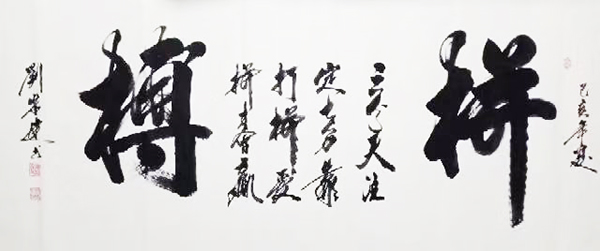 己亥年
拼
三分天注
定七分靠
打拼爱
拼才会赢
搏
劉建书